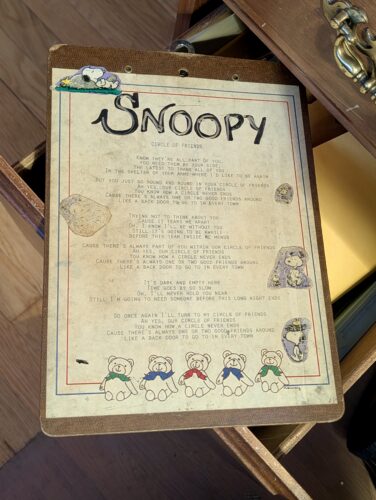 SNOOPY
CIRCLE OF FRIENDS
KNOW THEY'RE ALL PART OF YOU,
YOU NEED THEM BY YOUR SIDE;
THE LATEST TO THANK ALL OF YOU
IN THE SHELTER OF YOUR
BUT YOU JUST GO ROUND AND ROUND IN YOUR CIRCLE OF FRIENDS
AH YES, OUR CIRCLE OF FRIENDS
YOU KNOW HOW A CIRCLE NEVER ENDS
CAUSE THERE'S ALWAYS ONE OR TWO GOOD FRIENDS AROUND
LIKE A BACK DOOR TO GO TO IN EVERY TOWN
TRYING NOT TO THINK ABOUT YOU
CAUSE IT TEARS ME APART
OH, I KNOW I'LL BE WITHOUT YOU
STILL, IT'S GOING TO BE
BEFORE THIS TEAR INSIDE ME MENDS
CAUSE THERE'S ALWAYS PART OF YOU WITHIN OUR CIRCLE OF FRIENDS
AH YES, OUR CIRCLE OF FRIENDS
YOU KNOW HOW A CIRCLE NEVER ENDS
CAUSE THERE'S ALWAYS ONE OR TWO GOOD FRIENDS AROUND
LIKE A BACK DOOR TO GO TO IN EVERY TOWN
IT'S DARK AND EMPTY HERE
TIME GOES BY SO SLOW
OH, I'LL NEVER HOLD YOU NEAR
STILL I'M GOING TO NEED SOMEONE BEFORE THIS LONG NIGHT ENDS
SO ONCE AGAIN I'LL TURN TO MY CIRCLE OF FRIENDS
AH YES, OUR CIRCLE OF FRIENDS
YOU KNOW HOW A CIRCLE NEVER ENDS
CAUSE THERE'S ALWAYS ONE OR TWO GOOD FRIENDS AROUND
LIKE A BACK DOOR TO GO TO IN EVERY TOWN